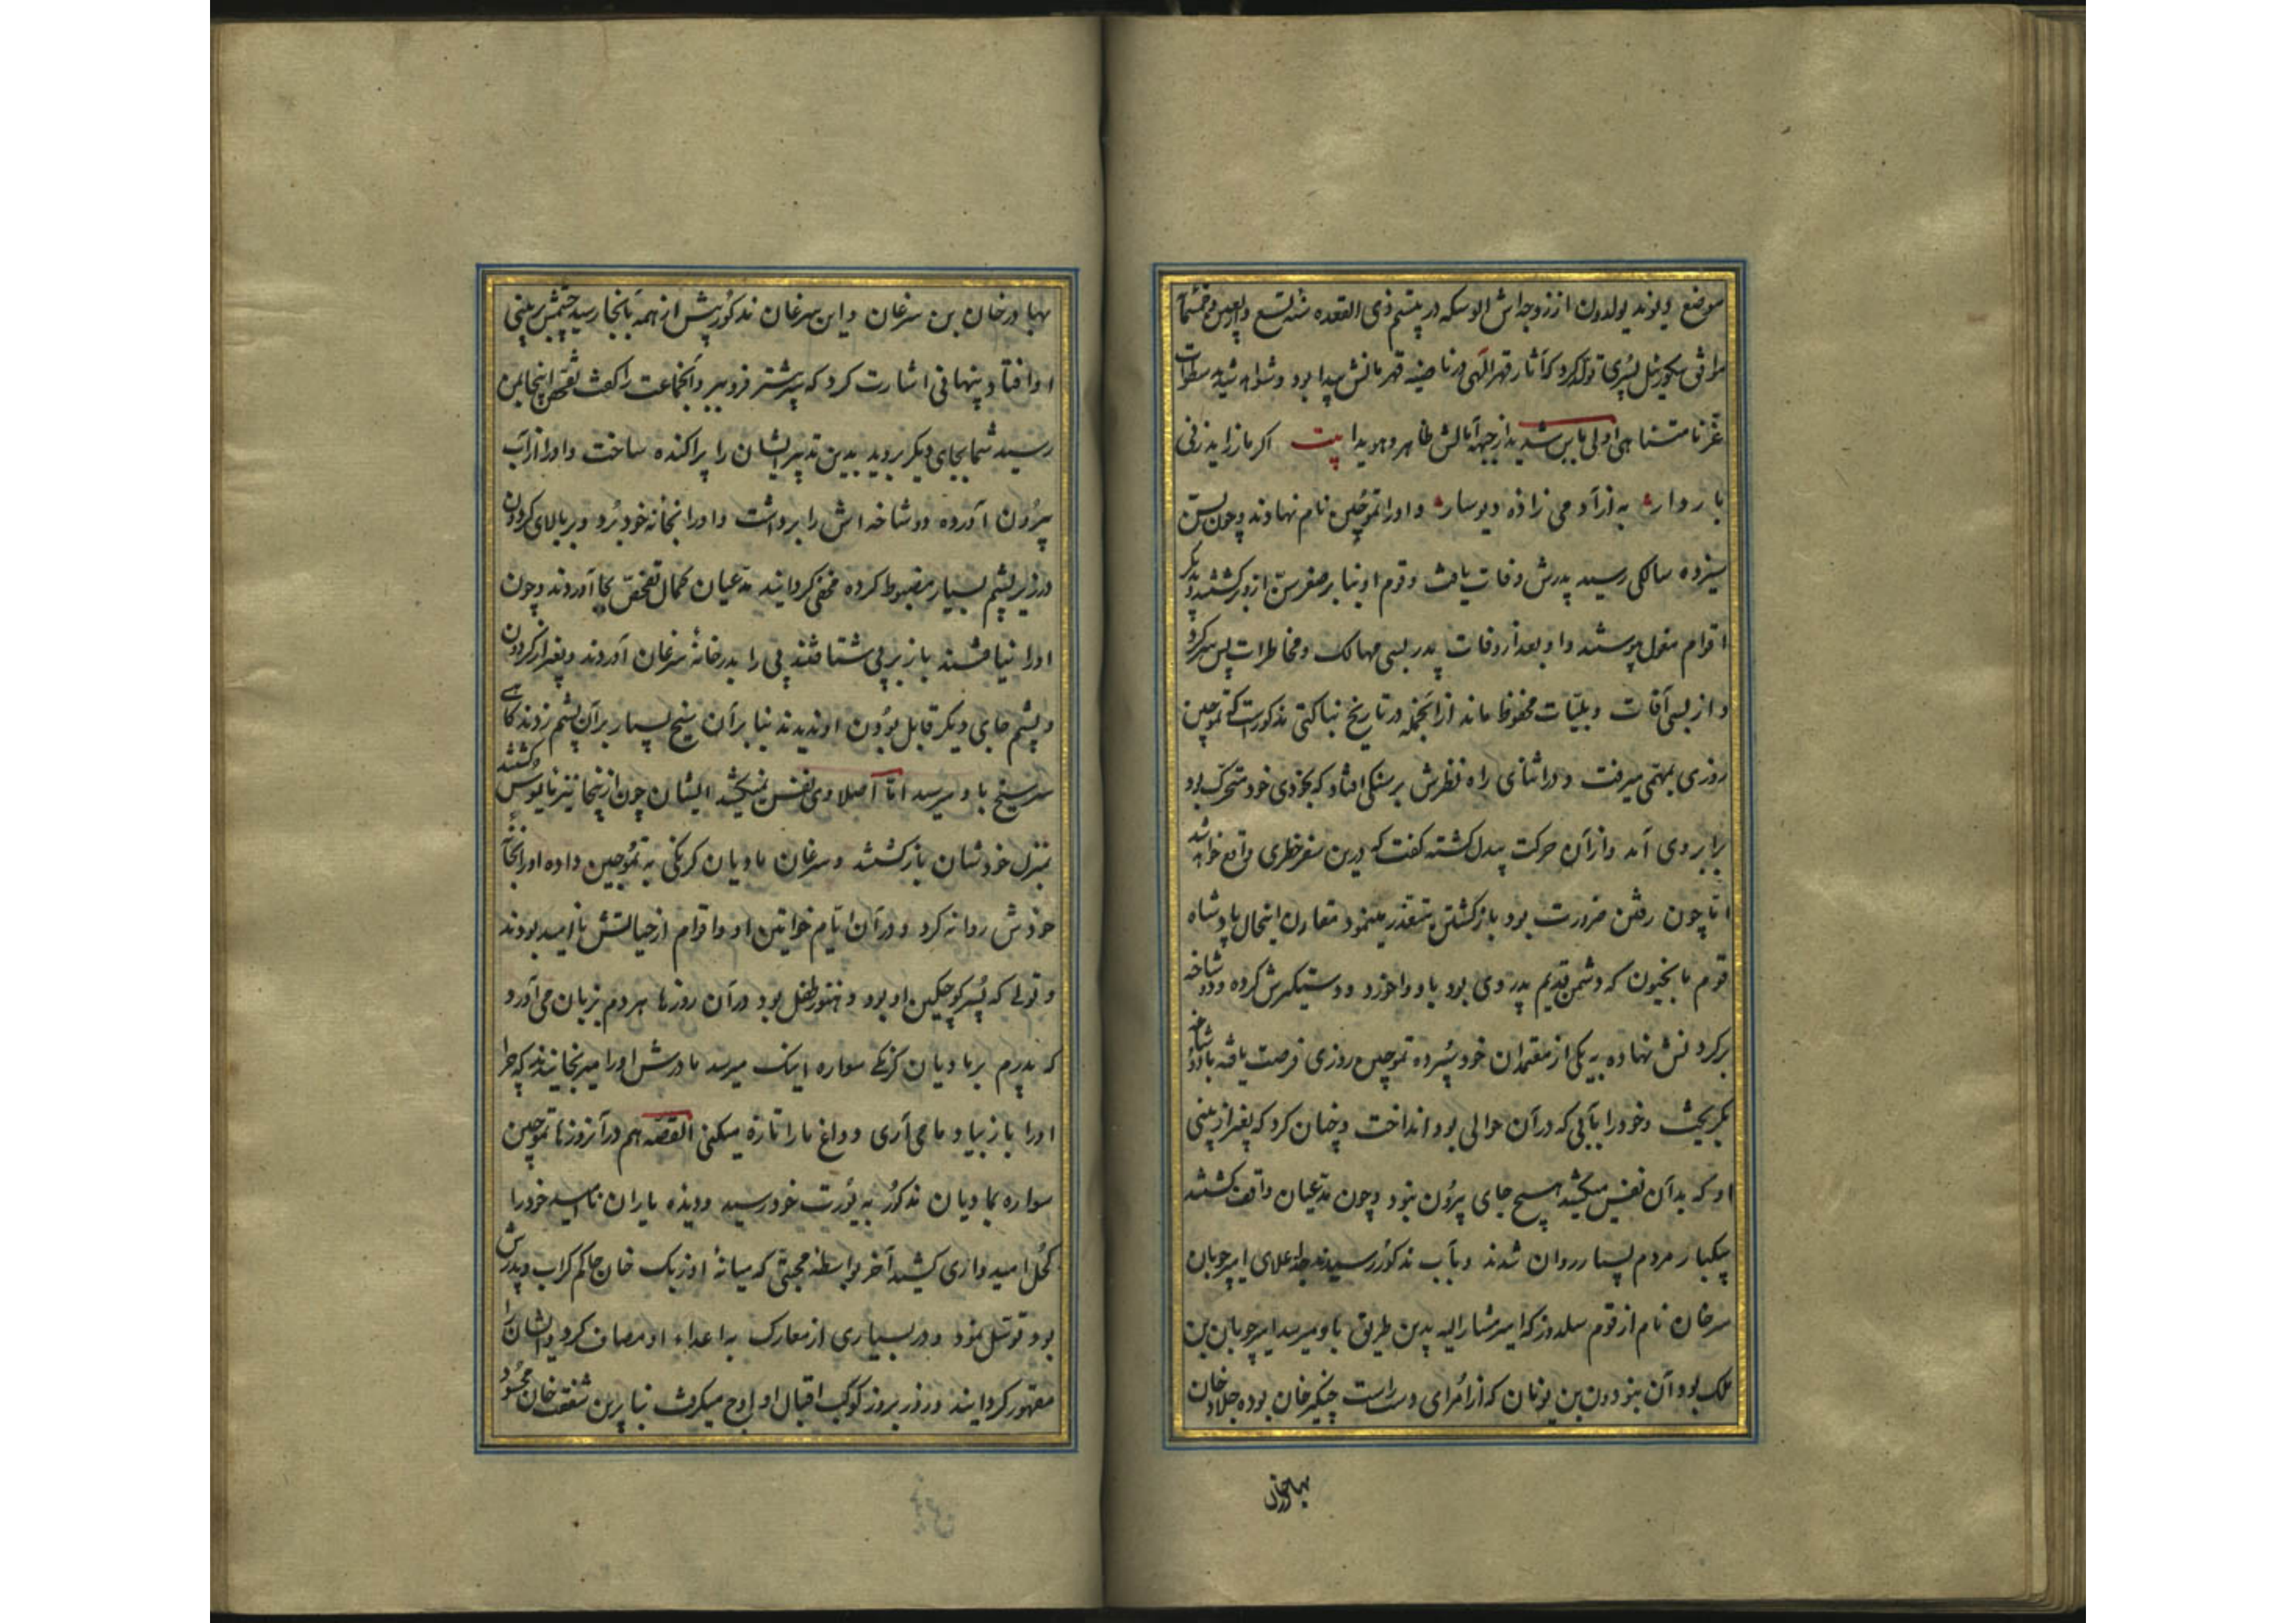 موضع دیلوند یولدون از زوجه‌اش الوسکه در بیستم ذی القعده سنه تسع و اربعین و خمسمآ
موافق سکوزئل پسری تولد کرد که آثار قهر الهی در ناصیه قهرمانش پیدا بود و شواهد شیاهه سطوات
غز نا متناهی اولی باس شدید از جبهه آمالش ظاهر و هویدا بیت اکر مار زاید زنی
باردار به از آدمی زاده دیوسار و او را تموجین نام نهادند و چون بسن
سیزده سالکی رسید پدرش وفات یافت و قوم او بنا بر صغر سن ازو برکشتند و بدیکر
اقوام مغول پیوستند و او بعد از وفات پدر بسی مهالک و مخاطرات پس سر کرد
و از بسی آفات و بلیّات محفوظ ماند از آنجمله در تاریخ بناکتی مذکورست که تموجین
روزی بمهمی میرفت و در اثنای راه نظرش بر سنکی افتاد که بخودی خود متحرک بود
برابر وی آمد و از آن حرکت بیدل کشته کفت که درین سفر خطری واقع خواهد شد
امّا چون رفتن ضرورت بود بازکشتن متعذر مینمود مقارن اینحال پادشاه
قوم تایجیون که دشمن قدیم پدر وی بود باو واخورد و دستکیرش کرده و دو شاخه
بر کردنش نهاده به یکی از معتمدان خود سپرده تموجین روزی فرصت یافته با دو شاخه
بکریخت و خود را بآبی که در آن حوالی بود انداخت و چنان کرد که بغیر از بینی
او که بدآن نفس میکشید هیچ جای بیرون نبود و چون مدعیان واقف کشتند
بیکبار مردم بسیار روان شدند و بآب مذکور رسیدند جد اعلای امیر چوبان
سرغان نام از قوم سلدوز که امیر مشارالیه بدین طریق باو میرسد امیر چوبان بن
ملک بود آن بنو دون بن یونان که از امرای دست راست چنکیز خان بوده جلاد خان
بهادرخان
بهادرخان بن سرغان و این سرغان مذکور پیش از همه بآنجا رسید چشمش بر بینی
او افتاد و پنهانی اشارت کرد که بیشتر فرو بر و آنجماعت را کفت تفحص اینجا بمن
رسید شما بجای دیکر بروید بدین تدبیر ایشان را پراکنده ساخت و او را از آب
بیرون آورده دو شاخه‌اش را برداشت و او را بخانه خود برد و بر بالای کردون
در زیر پشم بسیار مضبوط کرده مخفی کردانید مدعیان کمال تفحّص بجا آوردند و چون
او را نیافتند باز بر پی شتافتند پی را بدر خانهٔ سرغان آوردند و بغیر از کردون
و پشم جای دیکر قابل بودن او ندیدند بنا برآن سیخ بسیار بر آن پشم زدند کاهی
سر سیخ باو میرسید امّا اصلا وی نفس نمیکشید ایشان چون از ینجا نیز مأیوس کشتند
بمنزل خودشان بازکشتند و سرغان مادیان کرنکی به تموجین داده او را بخانه
خودش روانه کرد و در آن ایّام خواتین او و اقوام از حیاتش ناامید بودند
و تولی که پسر کوچکین او بود و هنوز طفل بود در آن روزها هر دم بزبان می‌آورد
که پدرم بر مادیان کرنکی سواره اینک میرسد مادرش او را میرنجانید که چرا
او را باز بیاد ما می‌آری و داغ ما را تازه میکنی القصّه هم در آنروزها تموجین
سواره بمادیان مذکور به یورت خود رسید و دیده یاران ناامید خود را
کحل امیدواری کشید آخر بواسطه محبتی که میانهٔ اوزبک خان حاکم کرایت و پدرش
بود توسّل نمود و در بسیاری از معارک به اعداء او مصاف کرد و ایشان را
مقهور کردانید و روز بروز کوکب اقبال او اوج میکرفت بنا برین شفقت خان محسود